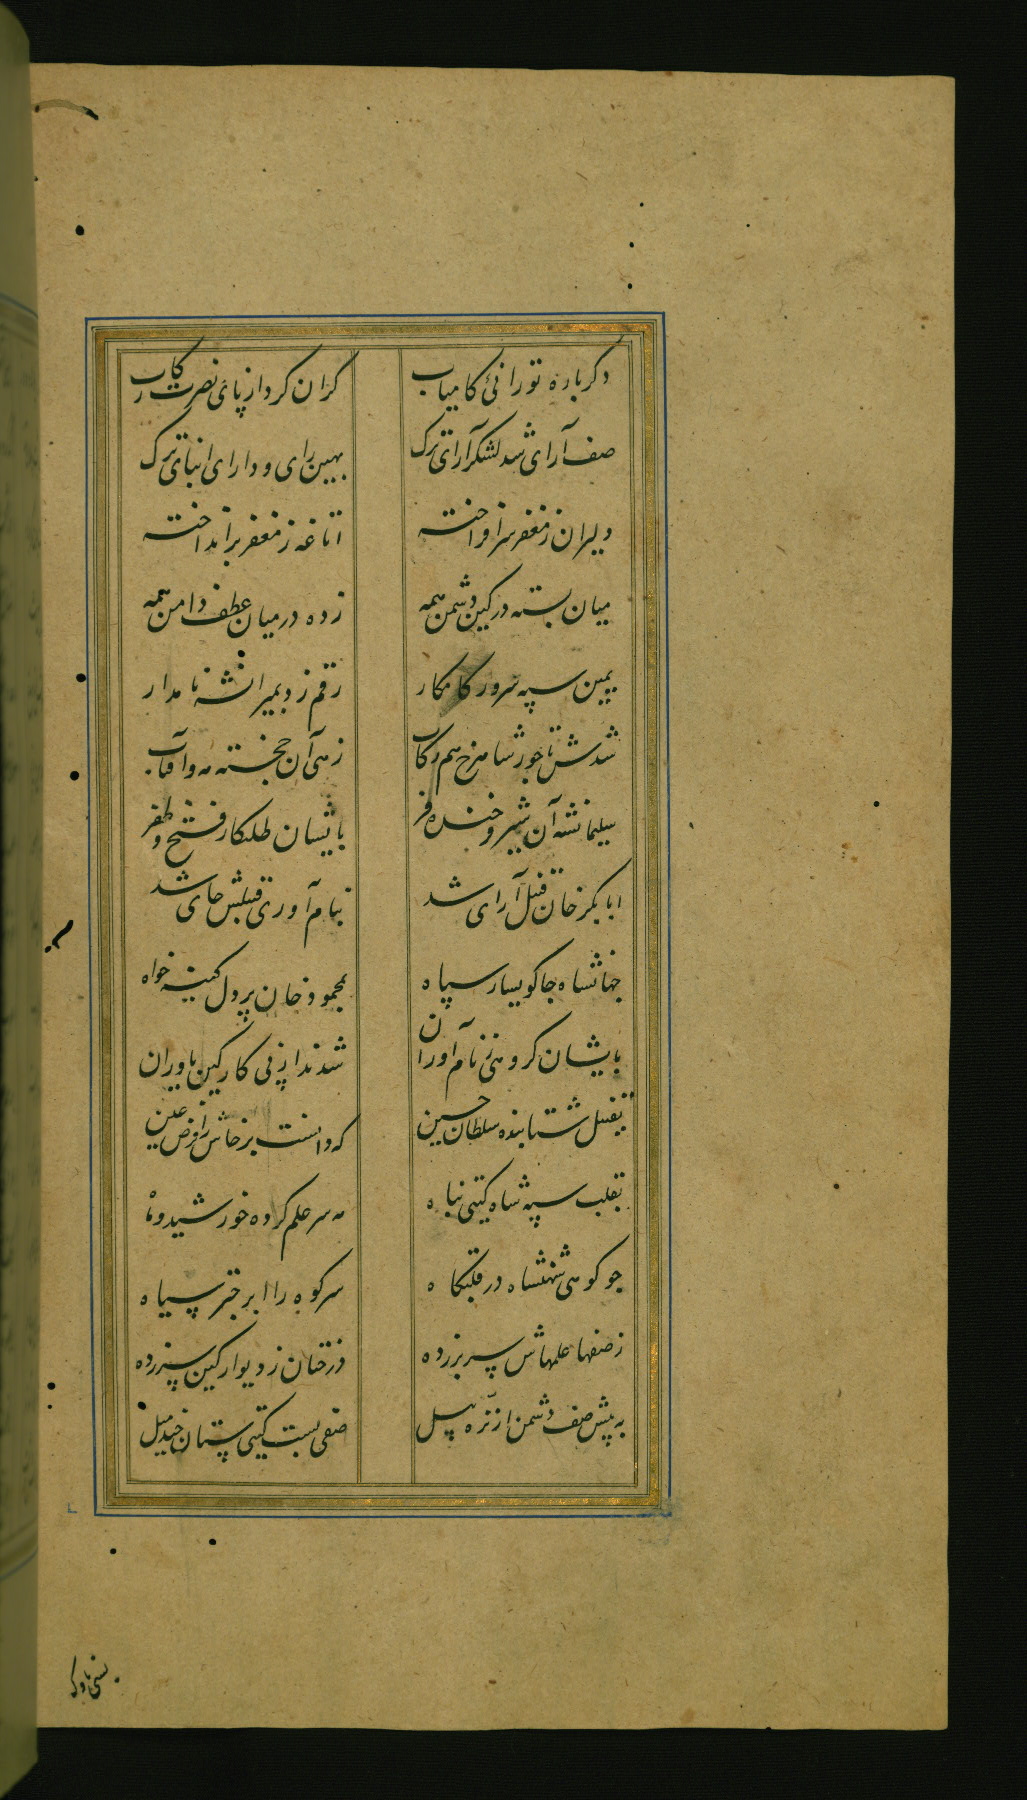 دکرباره تورانئ کامیاب کران کرد از پای نصرت رکاب
صف آرای شد لشکرآرای ترک بهین رای و دارای اتباتی ترک
دلیران ز مغفر سرافراخته اتاغه ز مغفر برانداخته
میان بسته در کین دشمن همه زده در میان عطف دامن همه
یمین سپه سرور کامکار رقم زد بمیرانشه نامدار
شدش تاجور شاهرخ هم رکاب زهی آن خجسته مه و آفتاب
سلیمانشه آن شیر فرخنده فر باایشان طلبکار فتح و ظفر
ابابکر خان قنبل آرای شد بنام آوری قنبلش جای شد
جهانشاه جاکو یسار سپاه بمحمود خان پردل کینه خواه
بایشان کروهی ز نام آوران شدند از پی کار کین یاوران
بقنبل شتابنده سلطان حسین که دانست پرخاش را فرض عین
بقلب سپه شاه کیتی پناه مه سر علم کرده خورشید و ماه
چو کوهی شهنشاه در قلبکاه سر کوه را ابر چتر سیاه
ز صفها علمهاش سر بر زده درختان ز دیوار کین سر زده
به پیش صف دشمن از نره پیل صفی بست کیتی ستان چند میل